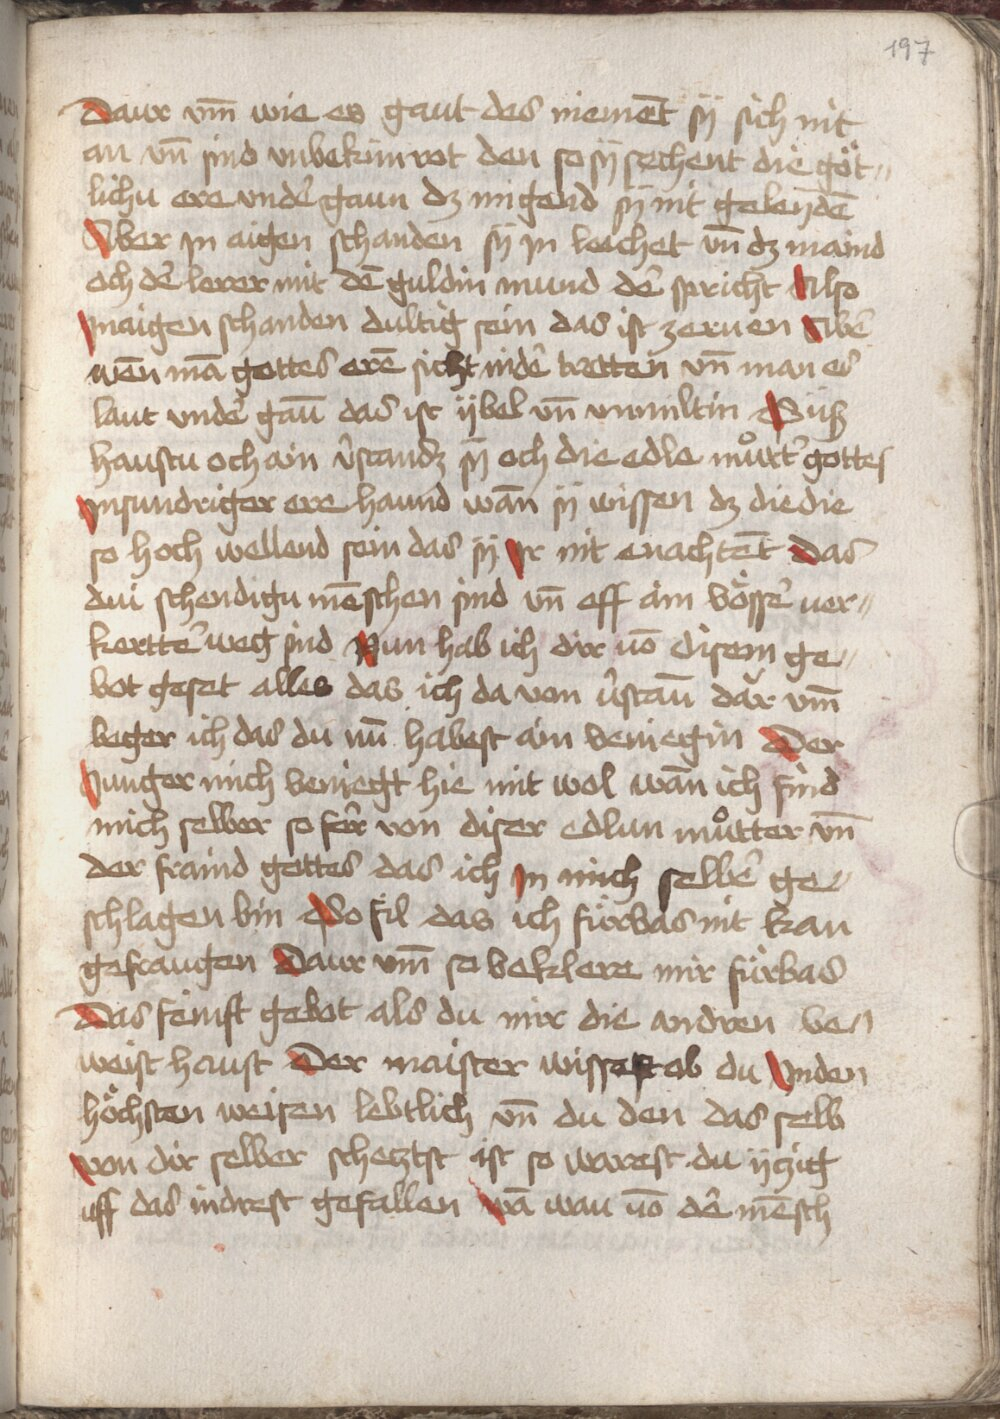 197
Daur vm̄ wie es gaut des niemēt sÿ sich nit
an vn̄ sind vnbekümrot den so sÿ sechent die göt-
lichu ere vnder̄ gaun dz mügend sÿ nit gelendē
Aber jn aigen schanden sÿ jn lachet vn̄ dz maind
och der̄ lerer mit dē guldin mund der̄ spricht Also
jn aigen schanden dultig sein das ist zerüen Aber̄
wen̄ mā gottes erē sicht under̄ tretten vn̄ man es
laut vnder̄ gau̅ das ist ÿbel vn̄ vnmiltin Suß
haustu och ain v̄standz sÿ och die edle můtt̄ gottes
jn sundriger ere haund wan̄ sÿ wissen dz die die
so hoch wellend sein das sÿ jr nit enachtēt das
dui schendigu mēschen sind vn̄ eff ain bösser̄ ver-
kertter̄ weg sind Nun hab ich dir vō disem ge-
bot geset alles das ich da von v̄stau̅ dar vm̄
beger ich das du nu̅ habest ain beniegin Der
junger mich beniegt hie mit wol wan̄ ich find
mich selber so fer̄r von diser edlun můtter vn̄
der fraind gottes das ich jn mich selber̄ ge-
schlagen bin So fil das ich fürbas nit kan
gefraugen Daur vm̄ so beklere mir fürbas
Das feinft gebot als du mir die andren be-
weist haust Der maister wissest ob du jn den
höchsten weisen lebtlich vn̄ du den das selb
von dir selber schetztst ist so warest du ÿtzig
uff das indrest gefallen wā wau vō der̄ mēsch